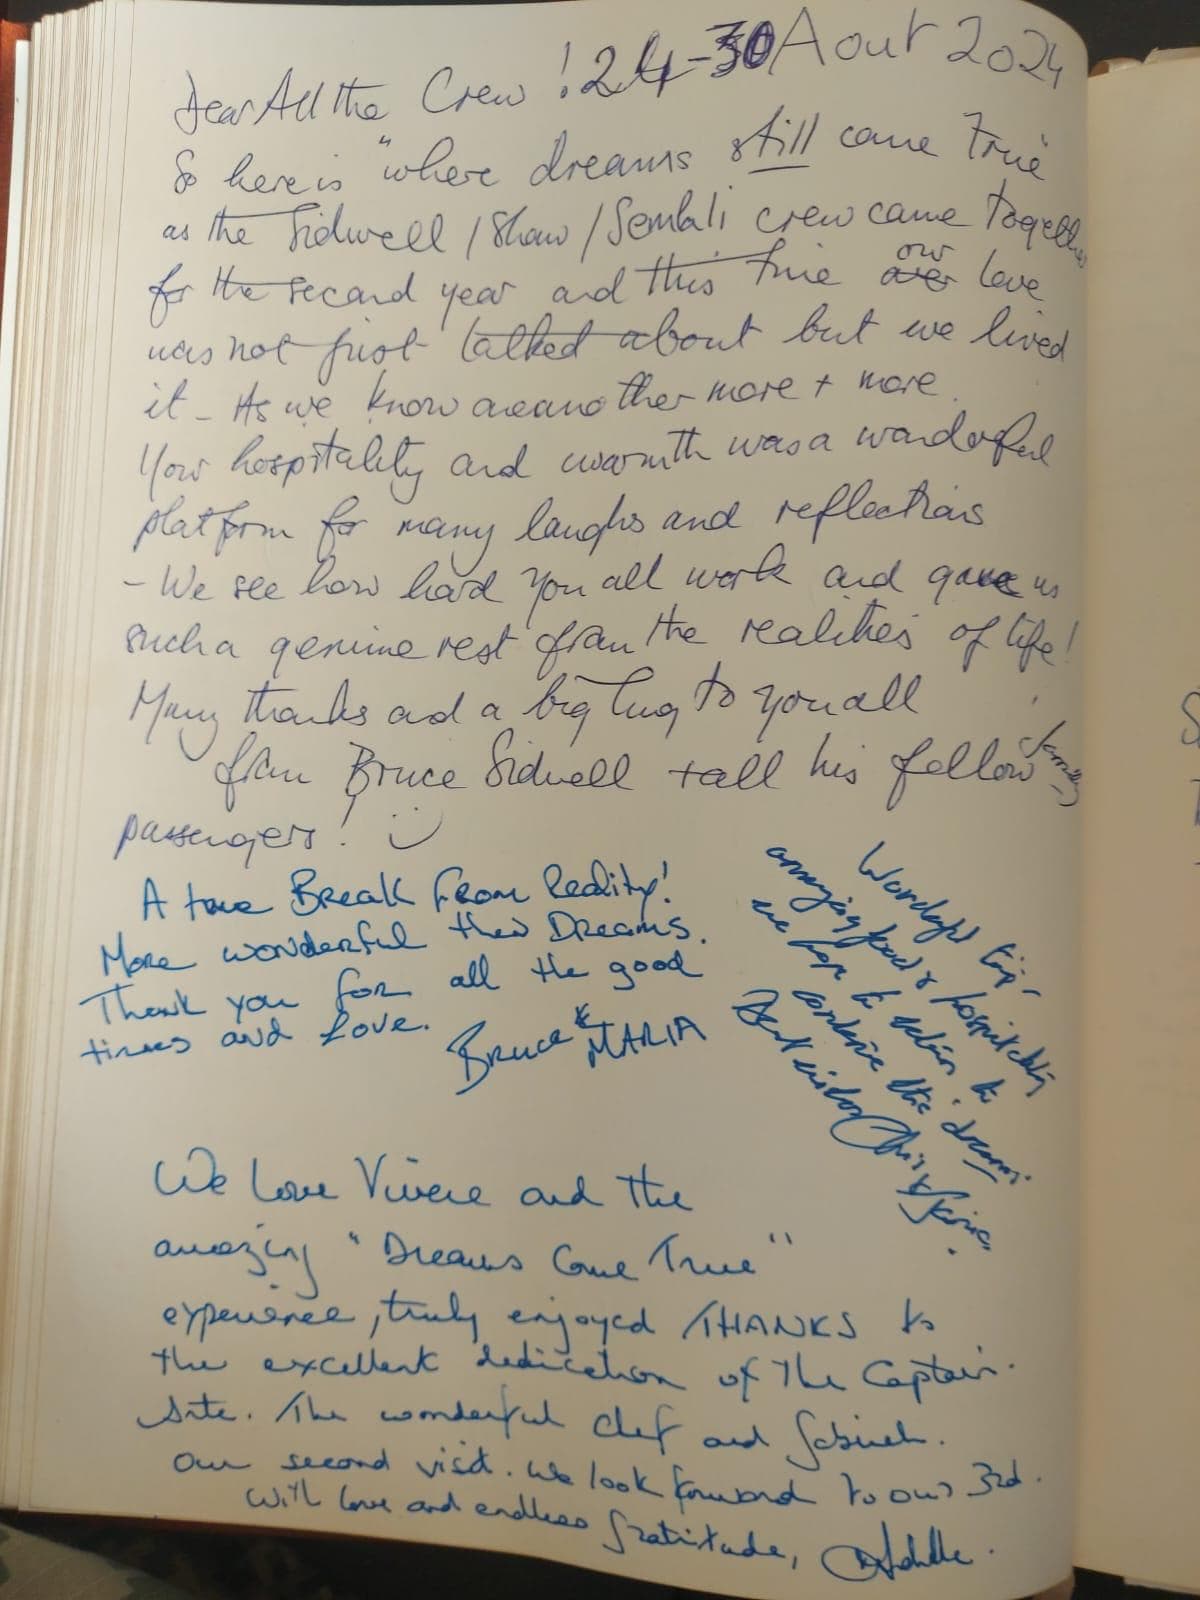 24-30 Aout 2024
Dear All the Crew!
So here is "where dreams still came True"
as the Sidwell / Shaw / Sembli crew came Together
for the second year and this time our love
was not just talked about but we lived
it - As we know oneanother more + more.
Your hospitality and warmth was a wonderful
platform for many laughs and reflections
- We see how hard you all work and gave us
such a genuine rest from the realities of life!
Many thanks and a big hug to you all
from Bruce Sidwell + all his fellow family
passengers!
A true Break From Reality!
More wonderful then Dreams.
Thank you for all the good
times and Love.
Bruce & MARIA
Wonderful trip -
amazing food & hospitality
we hope to return to
continue the dream.
Best wishes Chris &
We Love Vivere and the
amazing "Dreams Come True"
experience, truly enjoyed THANKS to
the excellent dedication of The Captain.
The wonderful Chef and
Our second visit. We look forward to our 3rd.
With love and endless Gratitude,